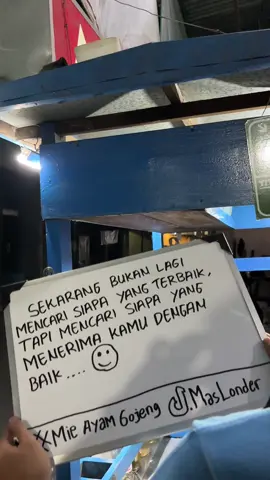 SEKARANG BUKAN LAGI
MENCARI SIAPA YANG TERBAIK,
TAPI MENCARI SIAPA YANG
MENERIMA KAMU DENGAN
BAIK....
XXMIE AYAM GOJENG .MASLONDER